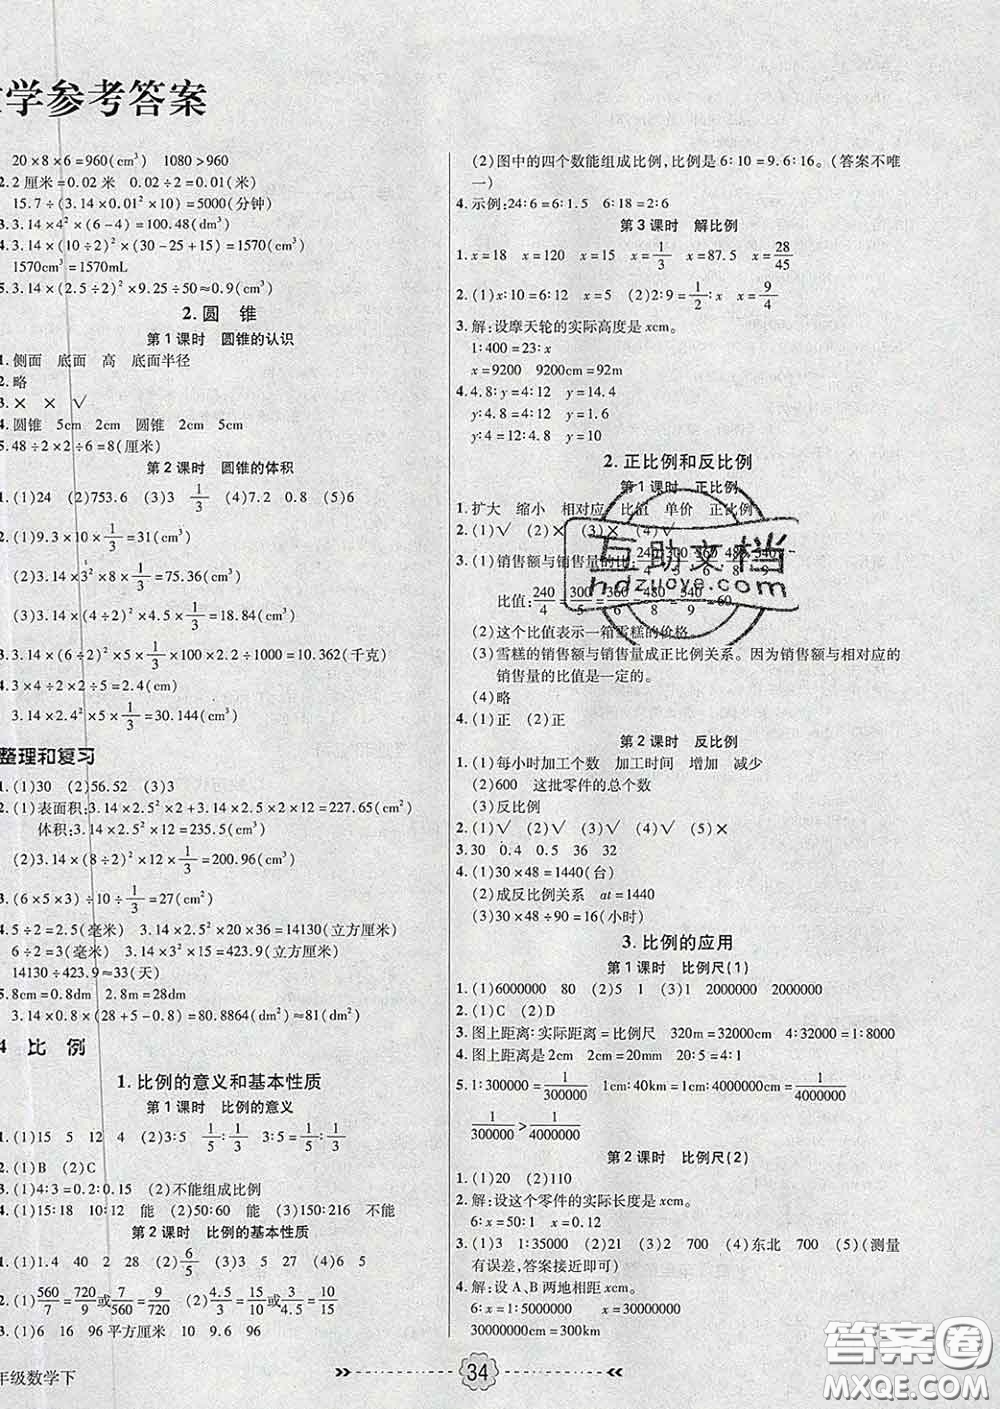 学参考答案
20×8×6=960(cm³) 1080>960
2.2厘米=0.02米 0.02÷2=0.01(米)
15.7÷(3.14×0.01²×10)=5000(分钟)
3.3.14×4²×(6-4)=100.48(dm³)
4.3.14×(10÷2)²×(30-25+15)=1570(cm³)
1570cm³=1570mL
5.3.14×(2.5÷2)²×9.25÷50≈0.9(cm)
2.圆 锥
第1课时 圆锥的认识
1.侧面 底面 高 底面半径
2.略
3.× × √
4.圆锥 5cm 2cm 圆锥 2cm 5cm
5.48÷2×2÷6=8(厘米)
第2课时 圆锥的体积
1.(1)24 (2)753.6 (3)3 (4)7.2 0.8 (5)6
2.(1)9.3×10×1/3=31(cm³)
(2)3.14×3²×8×1/3=75.36(cm³)
(3)3.14×(4÷2)²×4.5×1/3=18.84(cm³)
3.3.14×(6÷2)²×5×1/3×100×2.2÷1000=10.362(千克)
4.3×4÷2×2÷5=2.4(cm)
3.14×2.4²×5×1/3=30.144(cm³)
整理和复习
1.(1)30 (2)56.52 (3)3
2.(1)表面积:3.14×2.5²×2+3.14×2.5×2×12=227.65(cm²)
体积:3.14×2.5²×12=235.5(cm³)
(2)3.14×(8÷2)²×12×1/3=200.96(cm³)
3.(6×5×3)÷10÷1/3=27(cm²)
4.5÷2=2.5(毫米) 3.14×2.5²×20×36=14130(立方厘米)
6÷2=3(毫米) 3.14×3²×15=423.9(立方厘米)
14130÷423.9≈33(天)
5.8cm=0.8dm 2.8m=28dm
3.14×0.8×(28+5-0.8)=80.8864(dm²)≈81(dm²)
4 比 例
1.比例的意义和基本性质
第1课时 比例的意义
1.(1)15 5 12 4 (2)3:5 1/5:1/3 3:5=1/5:1/3
2.(1)B (2)C
3.(1)4:3=0.2:0.15 (2)不能组成比例
4.(1)15:18 10:12 能 (2)50:60 能 (3)150:216 不能
第2课时 比例的基本性质
1.(1)1.4 40 2 28 (2)6/5 (3)3 5 27 (4)6 5
2.(1)560/7=720/9或7/560=9/720 (2)4.5/3=15/10或3/4.5=10/15
3.(1)6 16 96平方厘米 10 9.6 96
年级数学下
(2)图中的四个数能组成比例,比例是6:10=9.6:16。(答案不唯
一)
4.示例:24:6=6:1.5 6:18=2:6
第3课时 解比例
1.x=18 x=120 x=15 x=1/3 x=87.5 x=28/45
2.(1)x:10=6:12 x=5 (2)2:9=1/2:x x=9/4
3.解:设摩天轮的实际高度是xcm。
1:400=23:x
x=9200 9200cm=92m
4.4.8:y=4:12 y=14.4
y:4.8=4:12 y=1.6
y:4=12:4.8 y=10
2.正比例和反比例
第1课时 正比例
1.扩大 缩小 相对应 比值 单价 正比例
2.(1)√ (2)× (3)× (4)√
3.(1)销售额与销售量的比:240/4 300/5 360/6 480/8 540/9
比值:240/4=300/5=360/6=480/8=540/9=60
(2)这个比值表示一箱雪糕的价格
(3)雪糕的销售额与销售量成正比例关系。因为销售额与相对应的
销售量的比值是一定的。
(4)略
4.(1)正 (2)正
第2课时 反比例
1.(1)每小时加工个数 加工时间 增加 减少
(2)600 这批零件的总个数
(3)反比例
2.(1)√ (2)√ (3)√ (4)√ (5)×
3.30 0.4 0.5 36 32
4.(1)30×48=1440(台)
(2)成反比例关系 at=1440
(3)30×48÷90=16(小时)
3.比例的应用
第1课时 比例尺(1)
1.(1)6000000 80 (2)5 1 (3)1 2000000 2000000
2.(1)C (2)D
3.图上距离:实际距离=比例尺 320m=32000cm 4:32000=1:8000
4.图上距离是2cm 2cm=20mm 20:5=4:1
5.1:300000=1/300000 1cm:40km=1cm:4000000cm=1/4000000
1/300000>1/4000000
第2课时 比例尺(2)
1.(1)20 (2)110
2.解:设这个零件的实际长度是xcm。
6:x=50:1 x=0.12
3.(1)3 1:35000 (2)21 (3)2 700 (4)东北 700 (5)(测量
有误差,答案接近即可)
4.解:设A、B两地相距xcm。
6:x=1:5000000 x=30000000
30000000cm=300km
34
互助文档
hdzuoye.com
答案圈
MXQE.COM